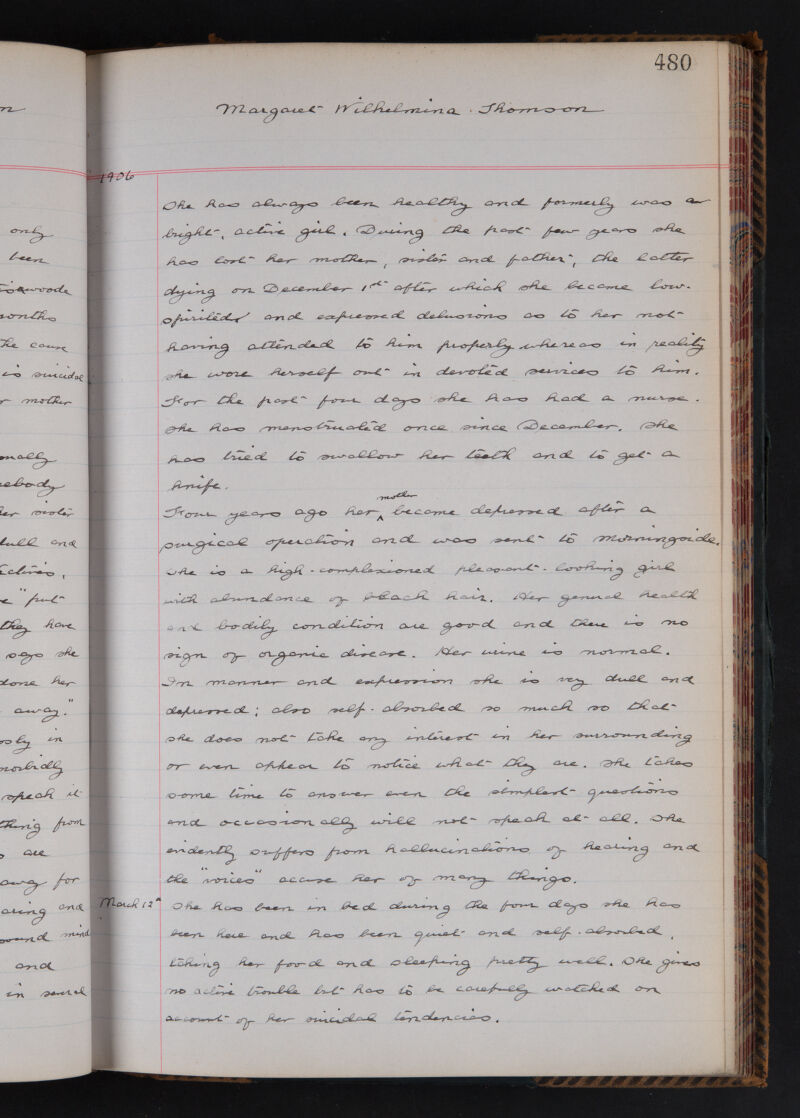 480
Margaret Wilhelmina Thomson
1906
She has always been healthy and formerly was a
bright, active girl. During the past few years she
has lost her mother, sister and father, the latter
dying on December 1st after which she became low-
spirited and expressed delusions as to her not
having attended to him properly whereas in reality
she wore herself out in devoted services to him.
For the past four days she has had a nurse.
She has menstruated once since December. She
has tried to swallow her teeth and to get a
knife.
Four years ago her mother became depressed after a
surgical operation and was sent to Morningside.
She is a high-complexioned pleasant-looking girl
with abundance of black hair. Her general health
and bodily condition are good and there is no
sign of organic disease. Her urine is normal.
In manner and expression she is very dull and
depressed; also self-absorbed so much so that
she does not take any interest in her surrounding
or even appear to notice what they are. She takes
some time to answer even the simplest questions
and occasionally will not speak at all. She
evidently suffers from hallucinations of hearing and
the "voices" accuse her of many things.
March 12th She has been in bed during the four days she has
been here and has been quiet and self-absorbed,
taking her food and sleeping pretty well. She gives
no active trouble but has to be carefully watched on
account of her suicidal tendencies.
only
been
months
the cause
is suicidal
mother
her sister
dull and
"put
they have
says she
done her
away."
in
morbidly
speak it
thing from
are
away for
and
sound mind
and
in several